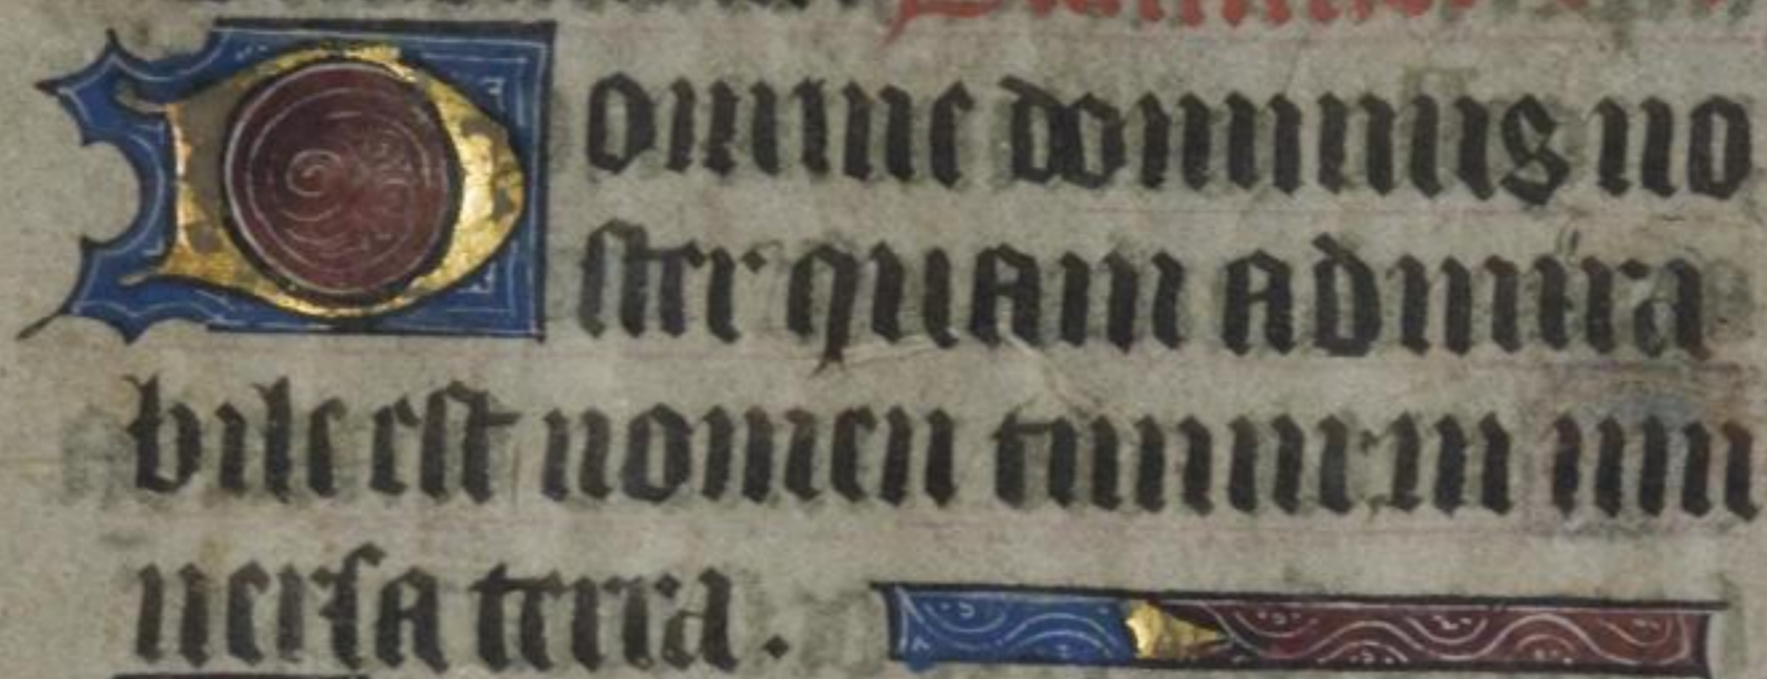 Domine dominus no
ster quam admira
bile est nomen tuum in uni
uersa terra.